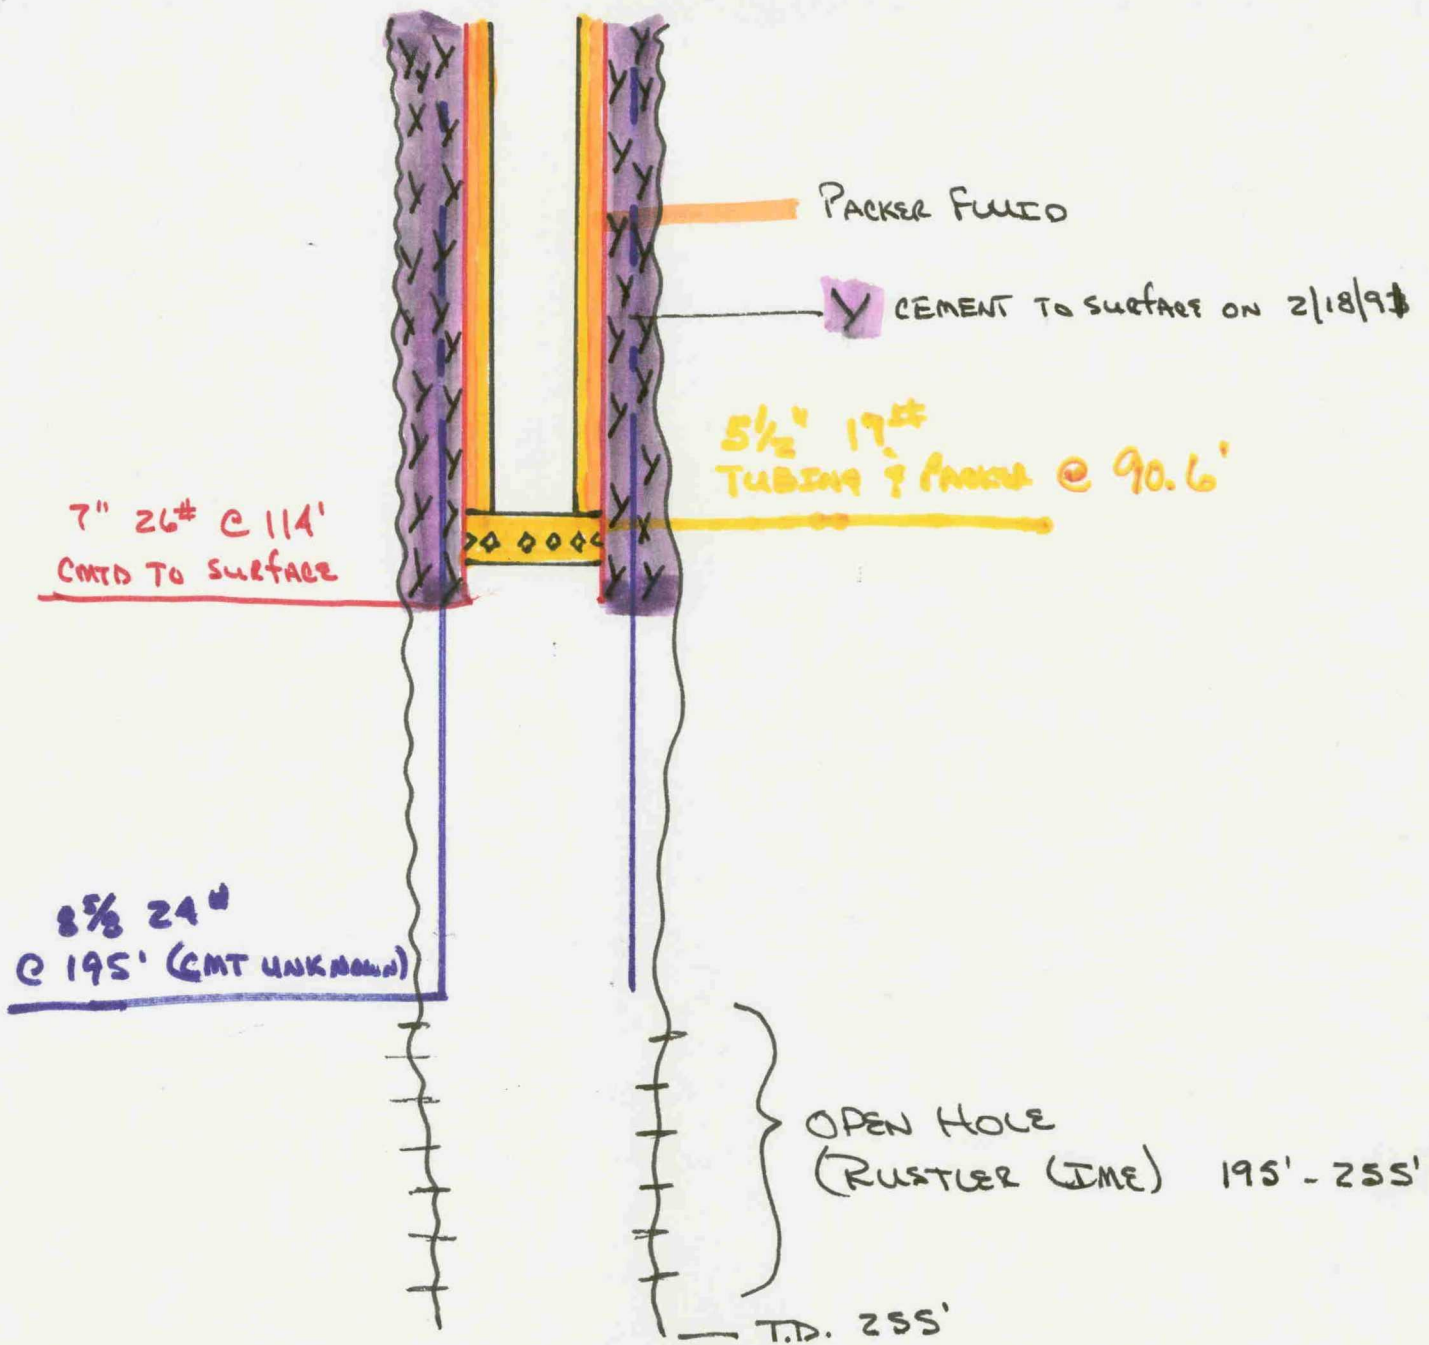 PACKER FLUID
Y CEMENT TO SURFACE ON 2/18/93
5½" 17#
TUBING & PACKER @ 90.6'
7" 26# @ 114'
CMTD TO SURFACE
8⅝ 24#
@ 195' (CMT UNKNOWN)
OPEN HOLE
(RUSTLER LIME) 195' - 255'
T.D. 255'